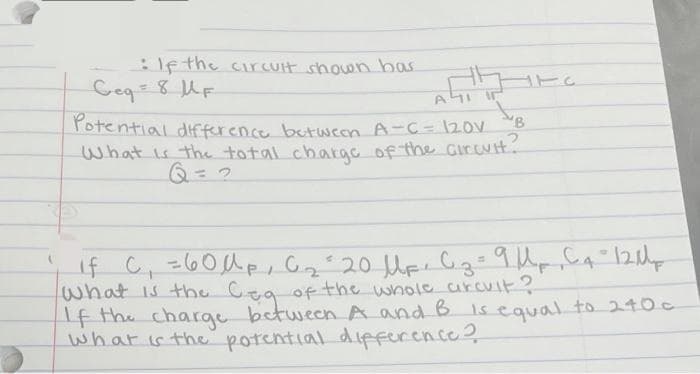 : If the circuit shown has
Ceq = 8 μF
C
A
B
Potential difference between A-C = 120V
What is the total charge of the circuit?
Q = ?
If C₁ = 60 μF, C₂ = 20 μF, C₃ = 9 μF, C₄ = 12 μF
What is the Ceq of the whole circuit?
If the charge between A and B is equal to 240c
what is the potential difference?